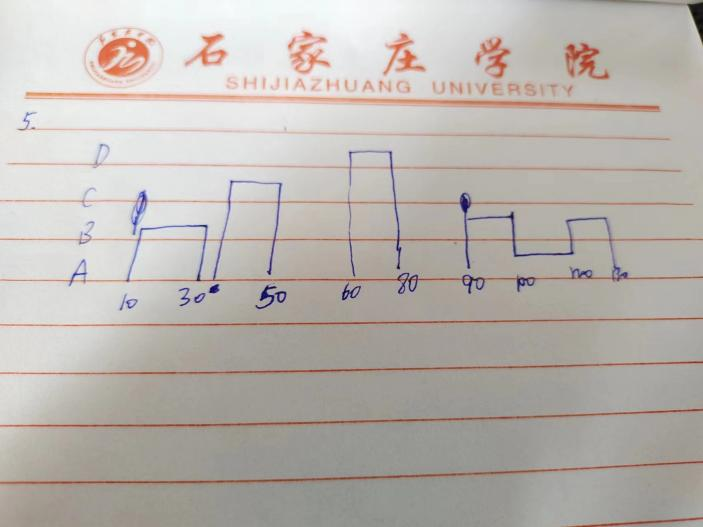 石家庄学院
SHIJIAZHUANG UNIVERSITY
5.
D
C
B
A
10 30 50 60 80 90 100